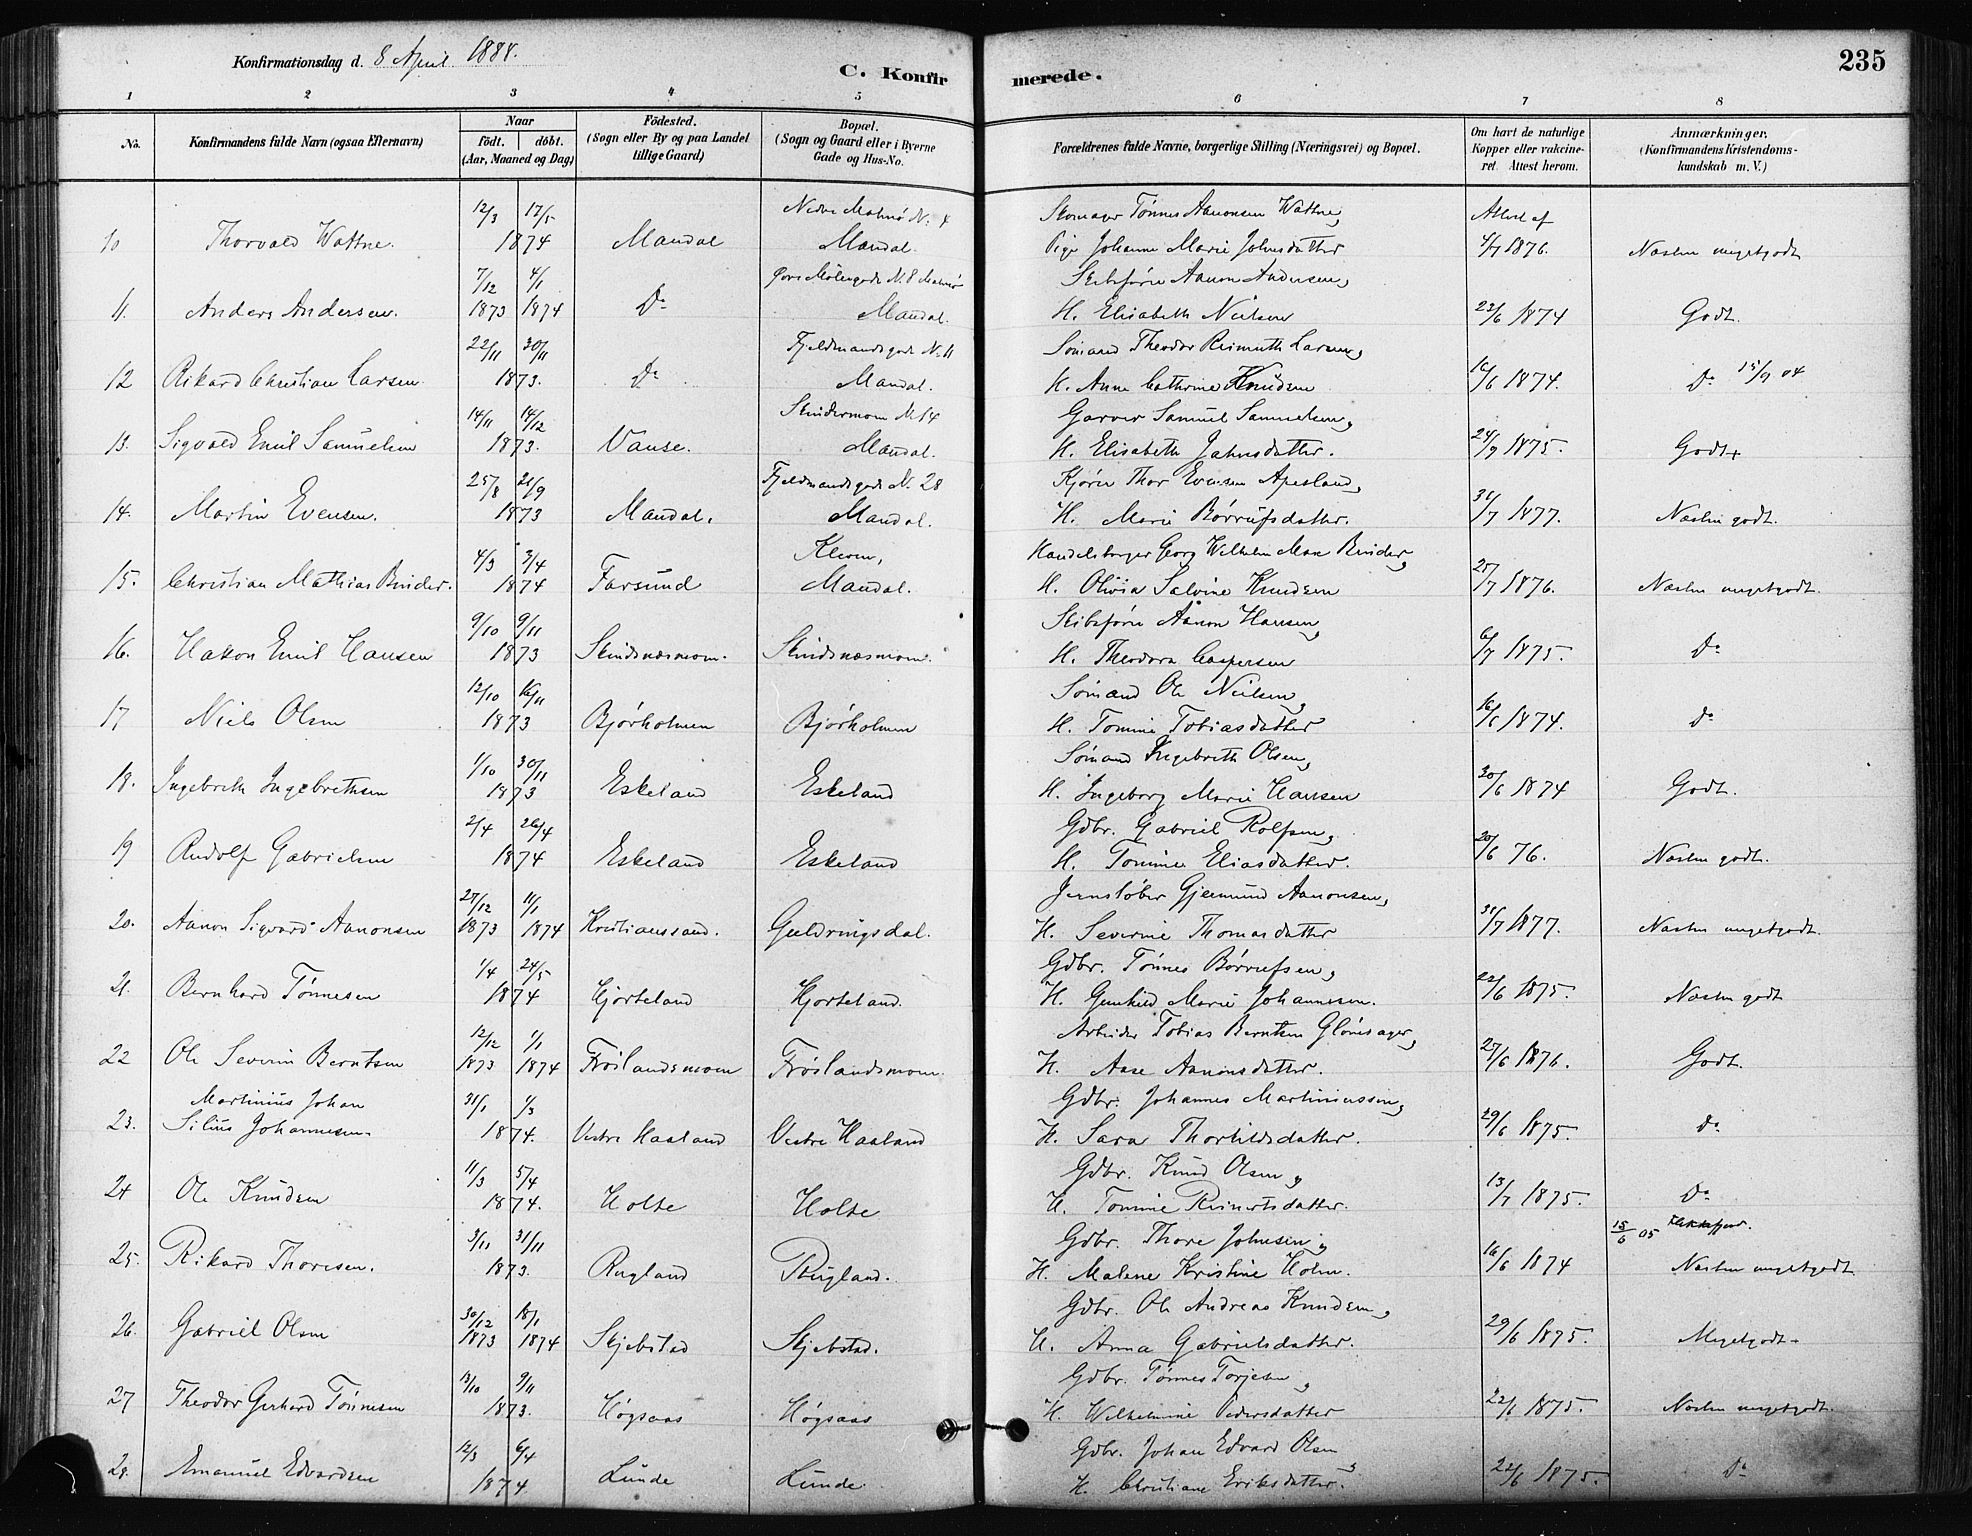 Konfirmationsdag d. 8 April 1884.
C. Konfirmerede.
235
1 2 3 4 5 6 7 8
No.
Konfirmandens fulde Navn (ogsaa Efternavn)
Naar
födt. döbt.
(Aar, Maaned og Dag)
Födested.
(Sogn eller By og paa Landet
tillige Gaard)
Bopæl.
(Sogn og Gaard eller i Byerne
Gade og Hus-No.
Forældrenes fulde Navne, borgerlige Stilling (Næringsvei) og Bopæl.
Om havt de naturlige
Kopper eller vakcineret. Attest herom.
Anmærkninger.
(Konfirmandens Kristendomskundskab m. V.)
12/3 17/5 Nedre Malmø N. 4 Skomager Tønnes Aanonsen Wattne, Attest af
10 Thorvald Wattne. 1874 Mandal Mandal. Pige Johanne Marie Johnsdatter 4/7 1876. Næsten megetgodt
7/12 4/1 Malmö Skibsfører Aanon Andersen,
11. Anders Andersen. 1873 1874 Do Mandal. H. Elisabeth Nielsen 23/6 1874 Godt.
22/11 30/11 Fjeldmandsgade N. 11 Sømand Theodor Reimuth Larsen,
12 Rikard Christian Larsen 1873. Do Mandal. H. Anne Cathrine Knudsen 16/6 1874. Do 15/9 04
14/11 14/12 Skindermoen N. 14 Garver Samuel Samuelsen,
13. Sigvald Emil Samuelsen 1873. Vanse. Mandal. H. Elisabeth Jahnsdatter. 24/9 1875. Godt+
25/8 21/9 Fjeldmandsgade N. 28 Kjører Thor Evensen Apesland,
14. Martin Evensen. 1873 Mandal. Mandal. H. Marie Børrufsdatter. 31/7 1877. Næsten godt.
4/3 3/4 Kleven, Handelsborger Georg Wilhelm Max Binder,
15. Christian Mathias Binder. 1874 Farsund Mandal. H. Olivia Salvine Knudsen 25/7 1876. Næsten megetgodt.
9/10 9/11 Skibsfører Aanon Hansen,
16. Hakon Emil Hansen 1873 Skindsnæsmoen. Skindsnæsmoen. H. Theodora Caspersen 6/7 1875. Do
12/10 16/11 Sømand Ole Nielsen,
17 Niels Olsen 1873 Bjørholmen Bjørholmen H. Tomine Tobiasdatter 16/6 1874. Do
1/10 30/11 Sømand Ingebreth Olsen,
18. Ingebreth Ingebrethsen 1873 Eskeland Eskeland H. Ingeborg Marie Hansen 30/6 1874 Godt.
2/4 26/4 Gdbr. Gabriel Rolfsen,
19 Rudolf Gabrielsen 1874 Eskeland Eskeland H. Tomine Eliasdatter. 20/6 76. Næsten godt.
27/12 11/1 Jernstøber Gjermund Aanonsen,
20. Aanon Sigvard Aanonsen 1873 1874 Kristianssand. Guldringsdal. H. Severine Thomasdatter 31/7 1877. Næsten megetgodt.
1/4 24/5 Gdbr. Tønnes Børrufsen,
21. Bernhard Tønnesen 1874 Hjorteland Hjorteland. H. Gunhild Marie Johannesen. 22/6 1875. Næsten godt
12/12 1/1 Arbeider Tobias Berntsen Glømsager,
22 Ole Severin Berntsen 1873 1874 Frøslandsmoen Frøslandsmoen. H. Aase Aanonsdatter. 27/6 1876. Godt.
Martinius Johan 31/1 1/3 Gdbr. Johannes Martiniussen,
23. Silius Johannesen. 1874. Vestre Haaland Vestre Haaland H. Sara Thorkildsdatter. 29/6 1875. Do
11/3 5/4 Gdbr. Knud Olsen,
24 Ole Knudsen 1874. Holte Holte H. Tomine Reinertsdatter. 13/7 1875. Do
3/11 31/11 Gdbr. Thore Johnsen, 15/6 05
25. Rikard Thoresen. 1873. Rugland Rugland. H. Malene Kristine Holm. 16/6 1874 Næsten megetgodt.
30/12 18/1 Gdbr. Ole Andreas Knudsen,
26. Gabriel Olsen 1873 1874 Skjebstad Skjebstad. H. Anna Gabrielsdatter. 29/6 1875. Megetgodt
13/10 9/11 Gdbr. Tønnes Torjesen,
27 Theodor Gerhard Tønnesen 1873. Høgsaas Høgsaas H. Wilhelmine Pedersdatter 22/6 1875. Næsten megetgodt.
12/3 6/4 Gdbr. Johan Edvard Olsen
28. Amanuel Edvardsen 1874 Lunde Lunde. H. Christiane Eriksdatter. 22/6 1875. Do